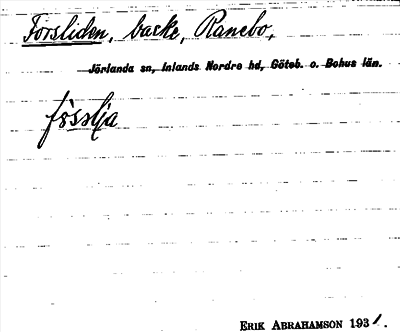 Forsliden, backe, Ranebo,
Jörlanda sn, Inlands Nordre hd, Göteb. o. Bohus län.
fösslja
ERIK ABRAHAMSON 1931.